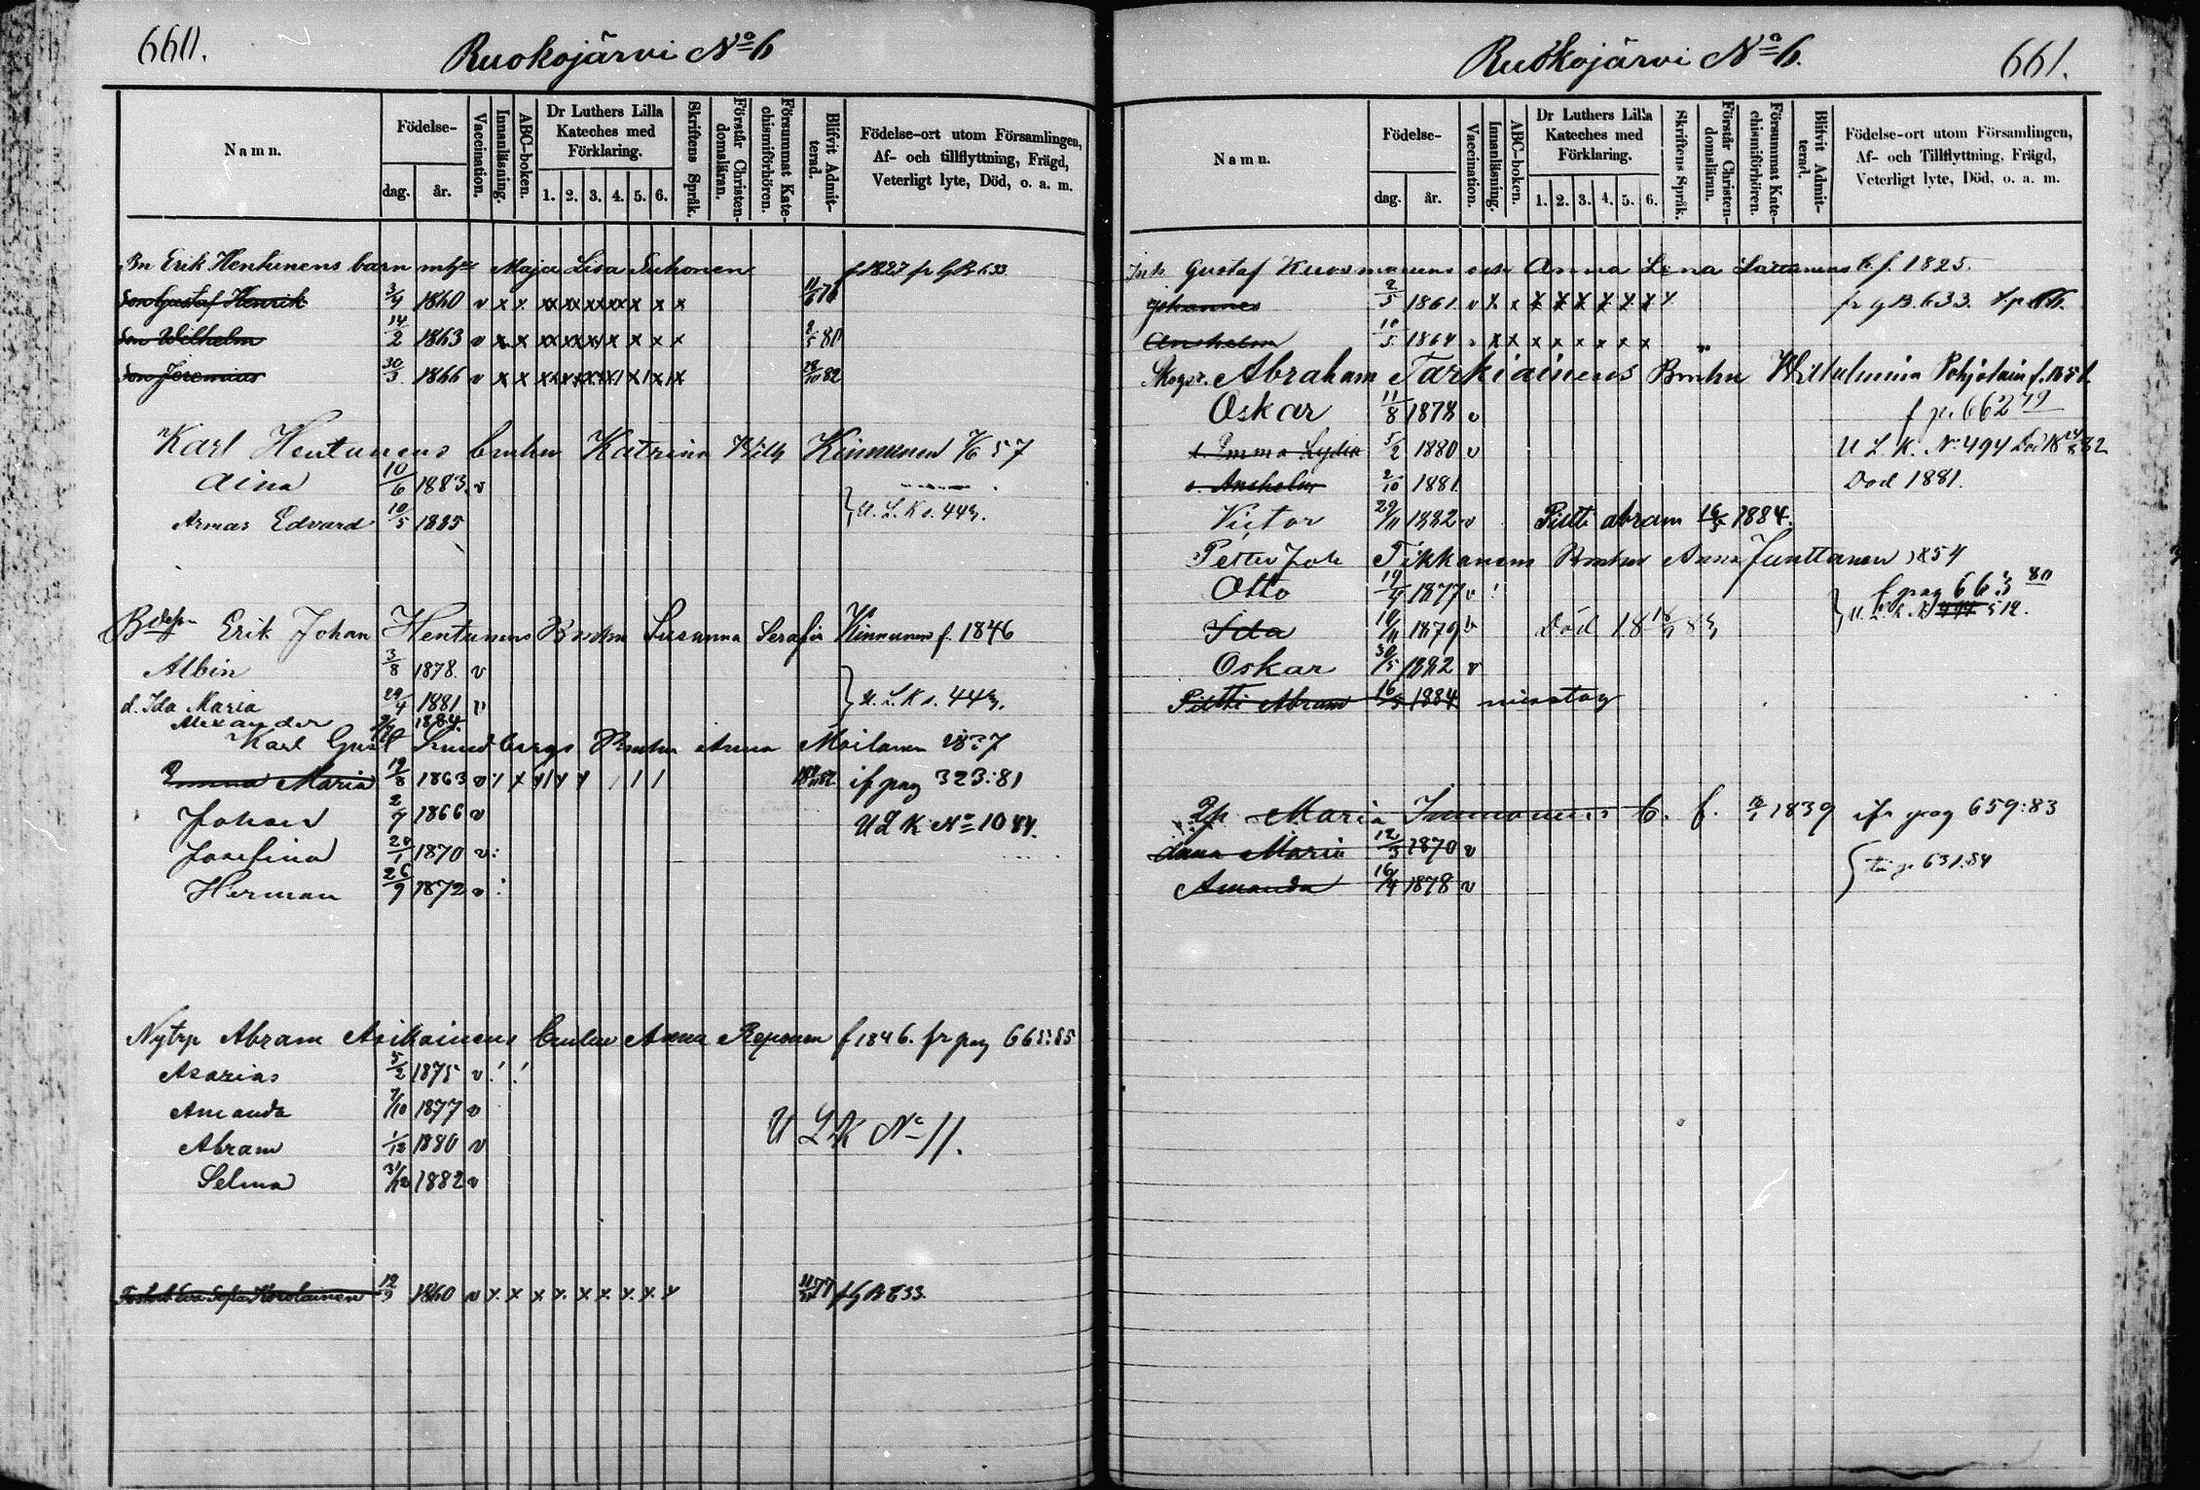 660.
Ruokojärvi No 6
Namn.
Födelse-
dag.
år.
Vaccination.
Innanläsning.
ABC-boken.
Dr Luthers Lilla Kateches med Förklaring.
1. 2. 3. 4. 5. 6.
Skriftens Språk.
Förstår Christendomsläran.
Försummat Katechismiförhören.
Blifvit Admitterad.
Födelse-ort utom Församlingen, Af- och tillflyttning, Frägd, Veterligt lyte, Död, o. a. m.
Bn Erik Hentunens barn m hu Maja Lisa Suhonen f 1827 fr G B 633
Son Gustaf Henrik 3/4 1860 v x x x x x x x x x x 11/6 76
Son Wilhelm 14/2 1863 v x x x x x x x x x x 80
Son Jeremias 30/3 1866 v x x x x x x x x x x 29/10 82
Karl Hentunens barn m hu Katrina Kinnunen 57
Aina 10/6 1883 v
Armas Edvard 10/5 1885 U. L. K s. 443.
Erik Johan Hentunens Barn m hu Susanna Serafia Kinnunen f. 1846
Albin 3/8 1878. v
d. Ida Maria 29/4 1881 v U. L. K s. 443.
Alexander 1884.
Karl Gust Lundbergs Barn m hu Anna Moilanen
Emma Maria 19/8 1863 v if pag 323:81
Johan 2/7 1866 v U L K No 1044.
Josefina 20/1 1870 v
Herman 26/9 1872 v
Nytrp Abram Asikainens barn m hu Anna Reponen f 1846. fr pag 665:85
Asarias 5/2 1875 v
Amanda 7/10 1877 v
Abram 1/12 1880 v
U L K No 11.
Selma 31/12 1882 v
Eva Sofia 19/9 1860 v x x x x x x x x 77 f G B 633

661.
Ruokojärvi No 6.
Namn.
Födelse-
dag.
år.
Vaccination.
Innanläsning.
ABC-boken.
Dr Luthers Lilla Kateches med Förklaring.
1. 2. 3. 4. 5. 6.
Skriftens Språk.
Förstår Christendomsläran.
Försummat Katechismiförhören.
Blifvit Admitterad.
Födelse-ort utom Församlingen, Af- och Tillflyttning, Frägd, Veterligt lyte, Död, o. a. m.
Inh Gustaf Kuosmanens och Anna Lena b. f. 1825.
Johannes 2/5 1861 v x x x x x x x x fr g B. 633.
Anshelm 1864 v x x x x x x x x
Abraham Tarkiainens Barn m hu Wilhelmina Pohjolain
Oskar 11/8 1878 v f pa 662 79
d. Emma Lydia 5/2 1880 v U L K. No 494 Död 82
s. Anshelm 2/10 1881 Död 1881.
Victor 29/11 1882 v Pietti abram 16/5 1884.
Petter Joh Tikkanens Barn m hu Anna Junttanen 1854
Otto 19/4 1877 v f pag 663 80
Ida 1879 v Död 83 U. L. K 512.
Oskar 30/5 1882 v
Pietti Abram 16/5 1884 misstag
Maria Immonens b. f. 1839 ifr pag 659:83
Anna Maria 12/3 1870 v
Amanda 16/4 1878 v